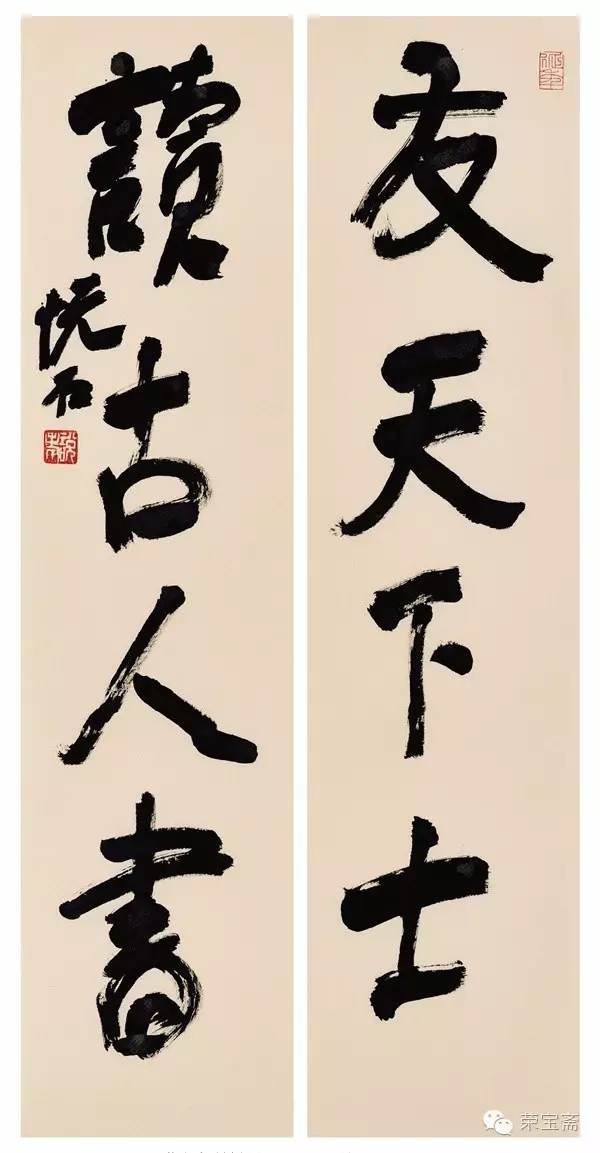 友天下士
讀古人書
悦石
荣宝斋